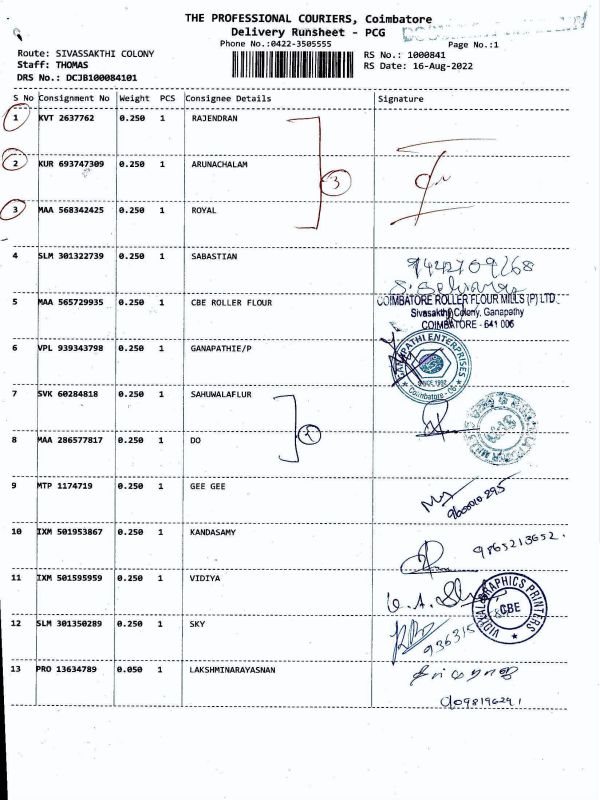 THE PROFESSIONAL COURIERS, Coimbatore
Delivery Runsheet - PCG
Phone No.:0422-3505555
Page No.:1
Route: SIVASSAKTHI COLONY
RS No.: 1000841
Staff: THOMAS
RS Date: 16-Aug-2022
DRS No.: DCJB100084101
S No Consignment No Weight PCS Consignee Details Signature
1 KVT 2637762 0.250 1 RAJENDRAN
2 KUR 693747309 0.250 1 ARUNACHALAM
3
3 MAA 568342425 0.250 1 ROYAL
4 SLM 301322739 0.250 1 SABASTIAN
5 MAA 565729935 0.250 1 CBE ROLLER FLOUR
COIMBATORE ROLLER FLOUR MILLS (P) LTD.
Sivasakthi Colony, Ganapathy
COIMBATORE - 641 006
6 VPL 939343798 0.250 1 GANAPATHIE/P
GANAPATHI ENTERPRISES
SINCE 1992
Coimbatore - 06
7 SVK 60284818 0.250 1 SAHUWALAFLUR
8 MAA 286577817 0.250 1 DO
9 MTP 1174719 0.250 1 GEE GEE
10 IXM 501953867 0.250 1 KANDASAMY
9865213652.
11 IXM 501595959 0.250 1 VIDIYA
VIDIYAL GRAPHICS PRINTERS
CBE
12 SLM 301350289 0.250 1 SKY
13 PRO 13634789 0.050 1 LAKSHMINARAYASNAN